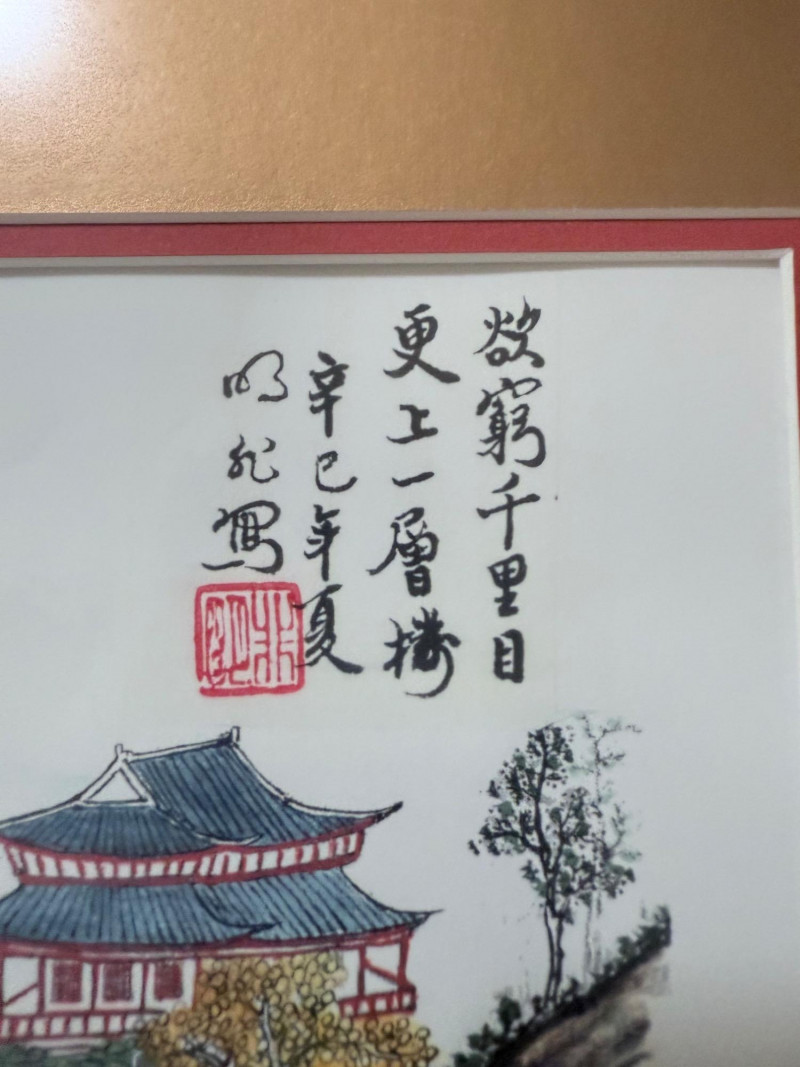 欲窮千里目
更上一層樓
辛巳年夏
明非寫